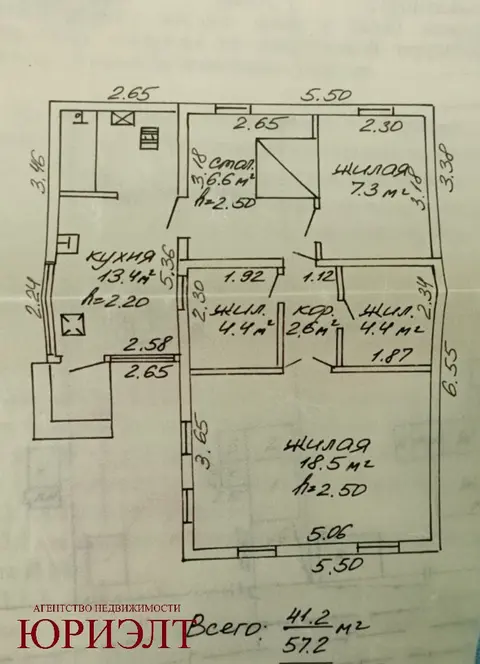 2.65
5.50
2.65
2.30
3.46
3.18
стол.
6.6 м²
h=2.50
жилая
7.3 м²
3.18
3.38
кухня
13.4 м²
h=2.20
5.36
2.24
1.92
1.12
2.30
жил.
4.4 м²
кор.
2.6 м²
жил.
4.4 м²
2.34
1.87
2.58
2.65
6.55
3.65
жилая
18.5 м²
h=2.50
5.06
5.50
АГЕНТСТВО НЕДВИЖИМОСТИ
ЮРИЭЛТ
Всего: 41.2 м²
57.2